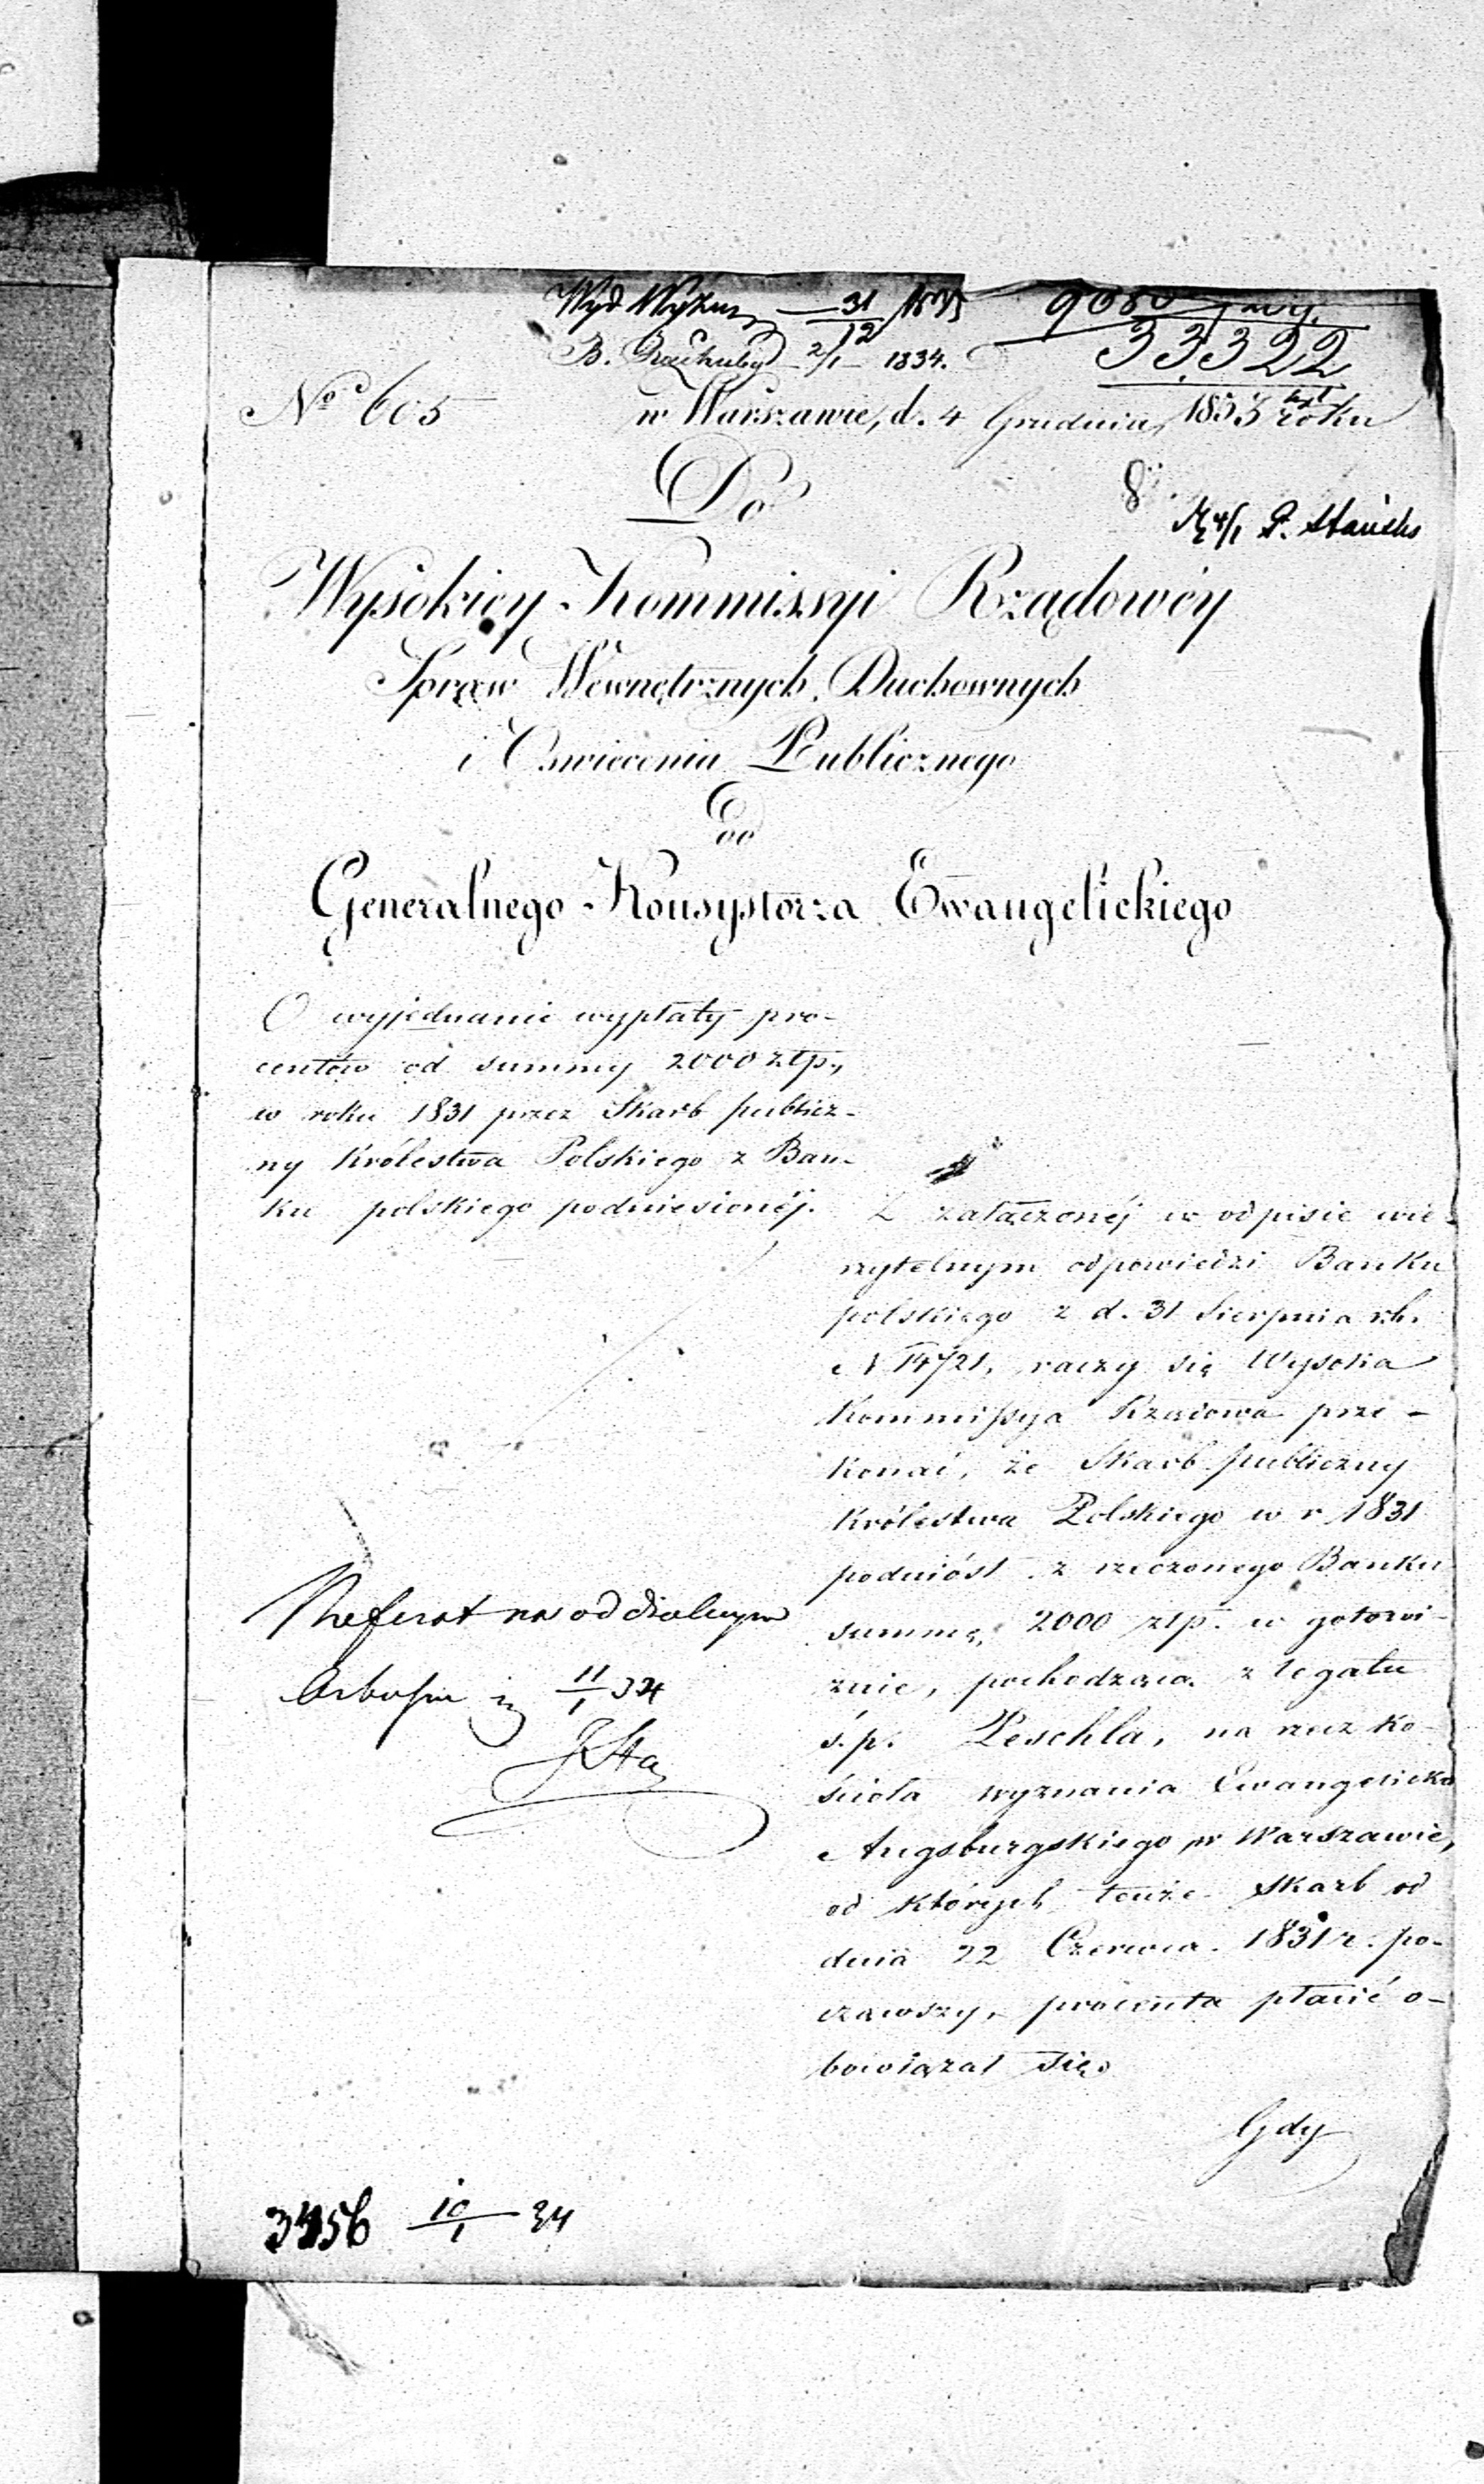 Wyd Wyzn 31/12 1833
9080
33322
B. Rachuby 2/1 1834.
№ 605
w Warszawie, d. 4 Grudnia 1833 roku
Do
8
4/1 P. Stanicki
Wysokiey Kommissyi Rządowéy
Spraw Wewnętrznych, Duchownych
i Oswiecenia Publicznego
od
Generalnego Konsystorza Ewangelickiego
O wyjednanie wypłaty pro-
centów od summy 2000 złp.,
w roku 1831 przez Skarb publicz-
ny Królestwa Polskiego z Ban-
ku polskiego podniesionéj.
Z załączonéj w odpisie wie-
rzytelnym odpowiedzi Banku
polskiego z d. 31 Sierpnia r.b.
N 14721, raczy się Wysoka
Kommissya Rządowa prze-
konać, że Skarb publiczny
Królestwa Polskiego w r 1831
podniósł z rzeczonego Banku
summę, 2000 złp. w gotowi-
znie, pochodzącą z legatu
ś.p. Peschla, na rzecz ko-
ścioła wyznania Ewangelicko
Augsburgskiego w Warszawie,
od których tenże Skarb od
dnia 22 Czerwca 1831 r. po-
cząwszy, procenta płacić o-
bowiązał się.
Gdy
Referat na oddzielnym
Arkuszu 11/1 34
3456 10/1 34